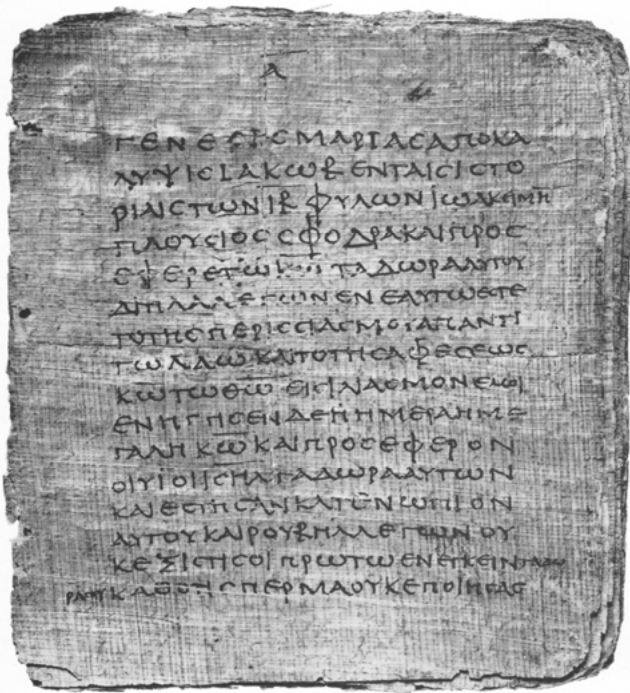 Α
ΓΕΝΕϹΙϹΜΑΡΙΑϹΑΠΟΚΑ
ΛΥΨΙϹΙΑΚΩΒΕΝΤΑΙϹΙϹΤΟ
ΡΙΑΙϹΤΩΝΙΒΦΥΛΩΝΙΩΑΚΕΙΜΗ
ΠΛΟΥϹΙΟϹϹΦΟΔΡΑΚΑΙΠΡΟϹ
ΕΦΕΡΕΤΩΚΩΤΑΔΩΡΑΑΥΤΟΥ
ΔΙΠΛΑΛΕΓΩΝΕΝΕΑΥΤΩΕϹΤΕ
ΤΟΤΗϹΠΕΡΙϹϹΙΑϹΜΟΥΑΠΑΝΤΙ
ΤΩΛΑΩΚΑΙΤΟΤΗϹΑΦΕϹΕΩϹ
ΚΩΤΩΘΩΕΙϹΙΛΑϹΜΟΝΕΜΟΙ
ΕΝΗΓΓΙϹΕΝΔΕΗΗΜΕΡΑΗΜΕ
ΓΑΛΗΚΩΚΑΙΠΡΟϹΕΦΕΡΟΝ
ΟΙΥΙΟΙΙϹΗΛΤΑΔΩΡΑΑΥΤΩΝ
ΚΑΙΕϹΤΗϹΑΝΚΑΤΕΝΩΠΙΟΝ
ΑΥΤΟΥΚΑΙΡΟΥΒΗΛΛΕΓΩΝΟΥ
ΚΕΞΙϹΤΙϹΟΙΠΡΩΤΩΕΝΕΓΚΕΙΝΤΑΔΩ
ΡΑϹΟΥΚΑΘΟΤΙϹΠΕΡΜΑΟΥΚΕΠΟΙΗϹΑϹ